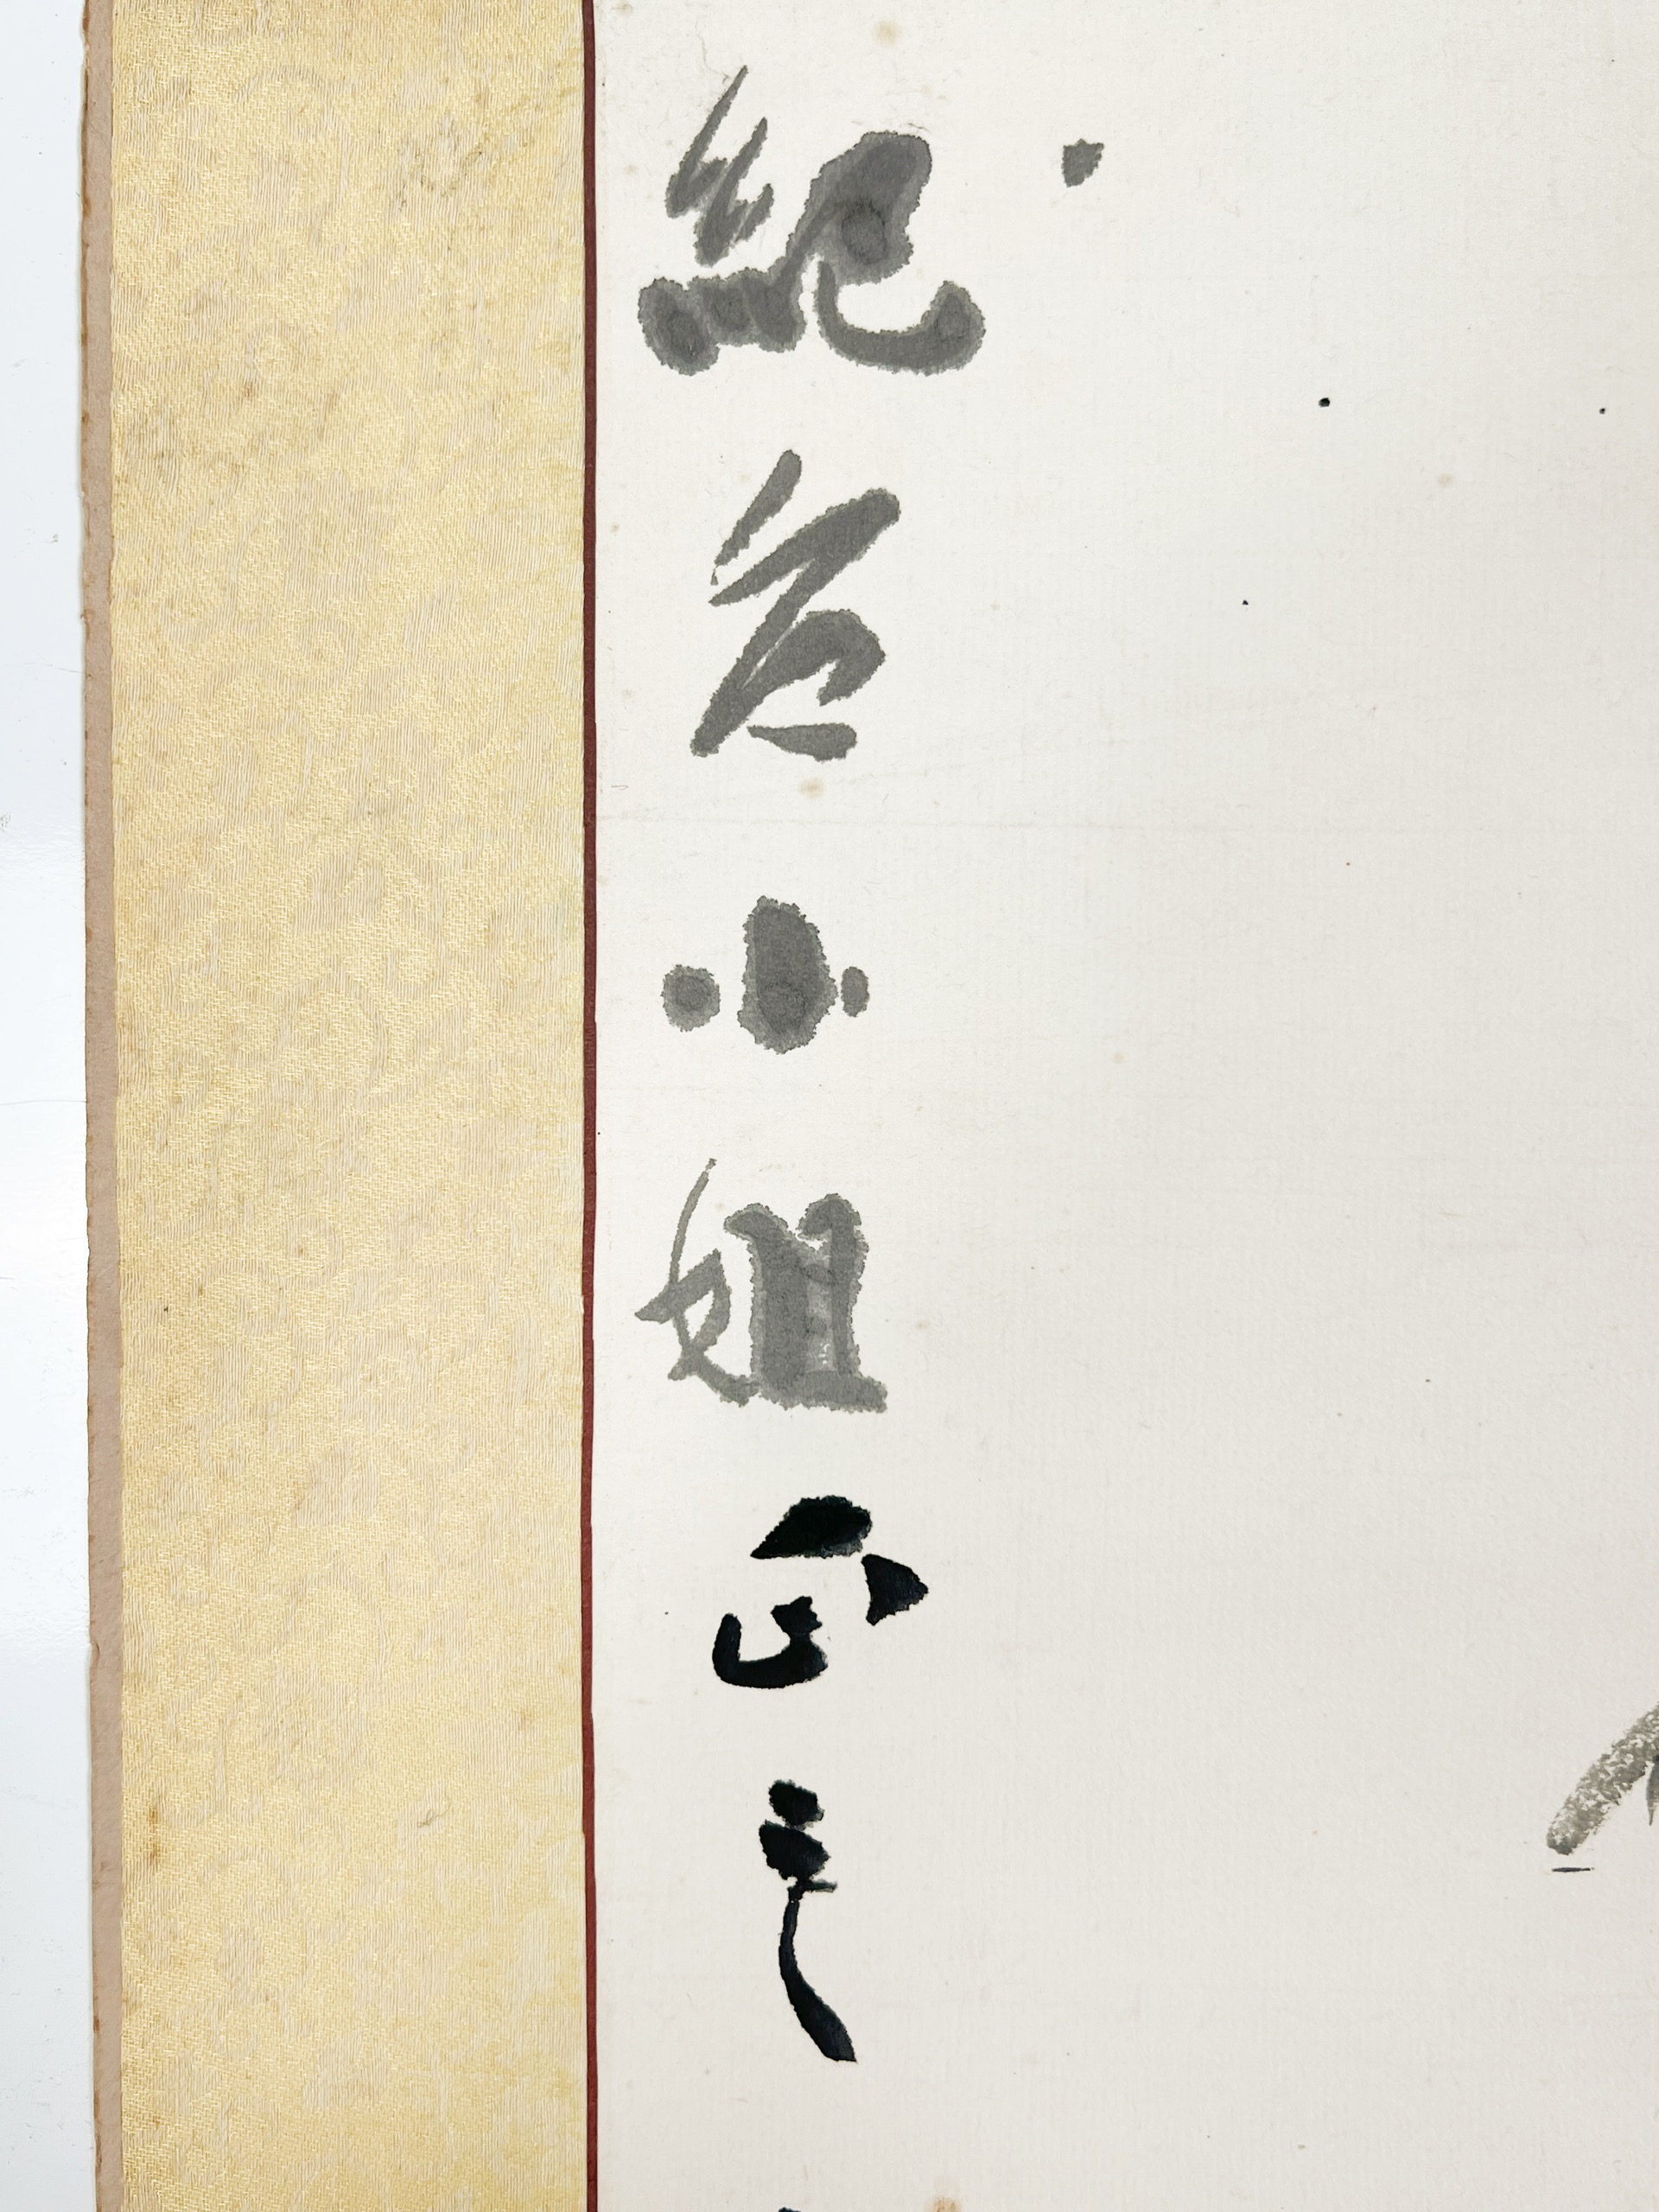 紀名小姐正之